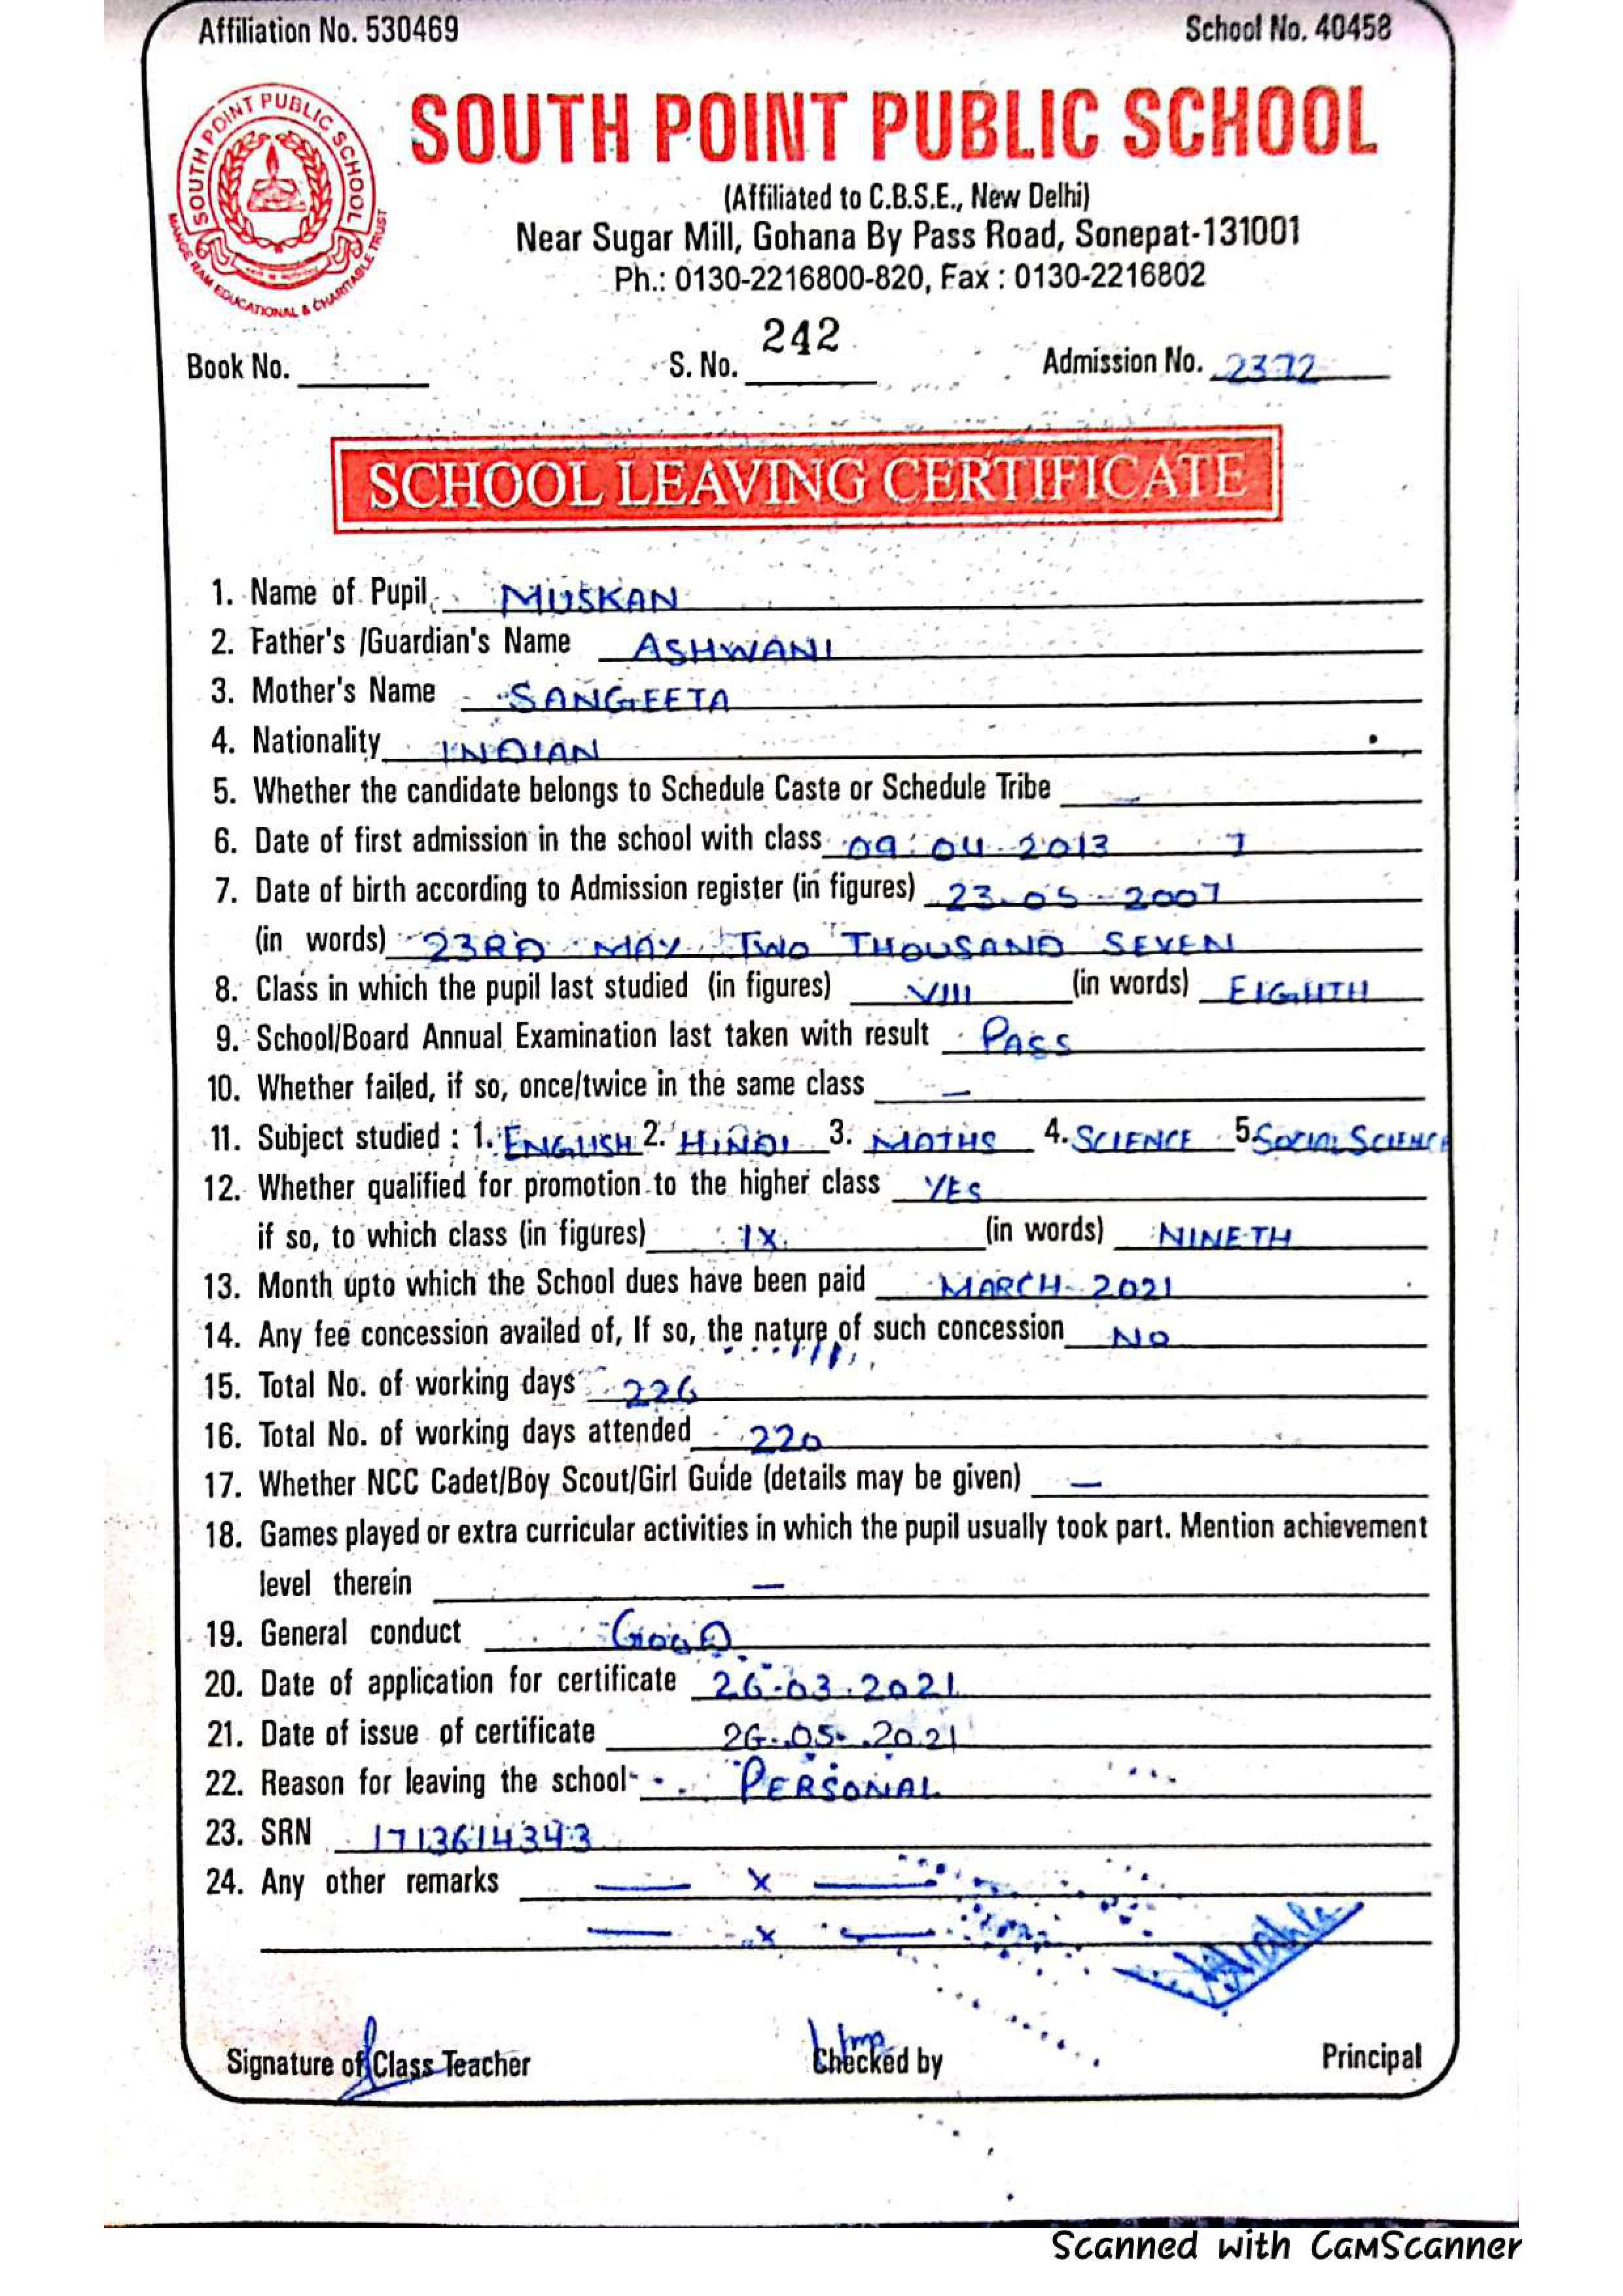 Affiliation No. 530469 School No. 40458
SOUTH POINT PUBLIC SCHOOL
MANGE RAM EDUCATIONAL & CHARITABLE TRUST
SOUTH POINT PUBLIC SCHOOL
(Affiliated to C.B.S.E., New Delhi)
Near Sugar Mill, Gohana By Pass Road, Sonepat-131001
Ph.: 0130-2216800-820, Fax : 0130-2216802
Book No. S. No. 242 Admission No. 2372
SCHOOL LEAVING CERTIFICATE
1. Name of Pupil MUSKAN
2. Father's /Guardian's Name ASHWANI
3. Mother's Name SANGEETA
4. Nationality INDIAN
5. Whether the candidate belongs to Schedule Caste or Schedule Tribe —
6. Date of first admission in the school with class 09.04.2013 I
7. Date of birth according to Admission register (in figures) 23-05-2007
(in words) 23RD MAY TWO THOUSAND SEVEN
8. Class in which the pupil last studied (in figures) VIII (in words) EIGHTH
9. School/Board Annual Examination last taken with result PASS
10. Whether failed, if so, once/twice in the same class —
11. Subject studied : 1. ENGLISH 2. HINDI 3. MATHS 4. SCIENCE 5. SOCIAL SCIENCE
12. Whether qualified for promotion to the higher class YES
if so, to which class (in figures) IX (in words) NINETH
13. Month upto which the School dues have been paid MARCH-2021
14. Any fee concession availed of, If so, the nature of such concession NO
15. Total No. of working days 226
16. Total No. of working days attended 220
17. Whether NCC Cadet/Boy Scout/Girl Guide (details may be given) —
18. Games played or extra curricular activities in which the pupil usually took part. Mention achievement
level therein —
19. General conduct GOOD
20. Date of application for certificate 26.03.2021
21. Date of issue of certificate 26.05.2021
22. Reason for leaving the school PERSONAL
23. SRN 1713614343
24. Any other remarks — x —
— x —
Signature of Class Teacher Checked by Principal
Scanned with CamScanner